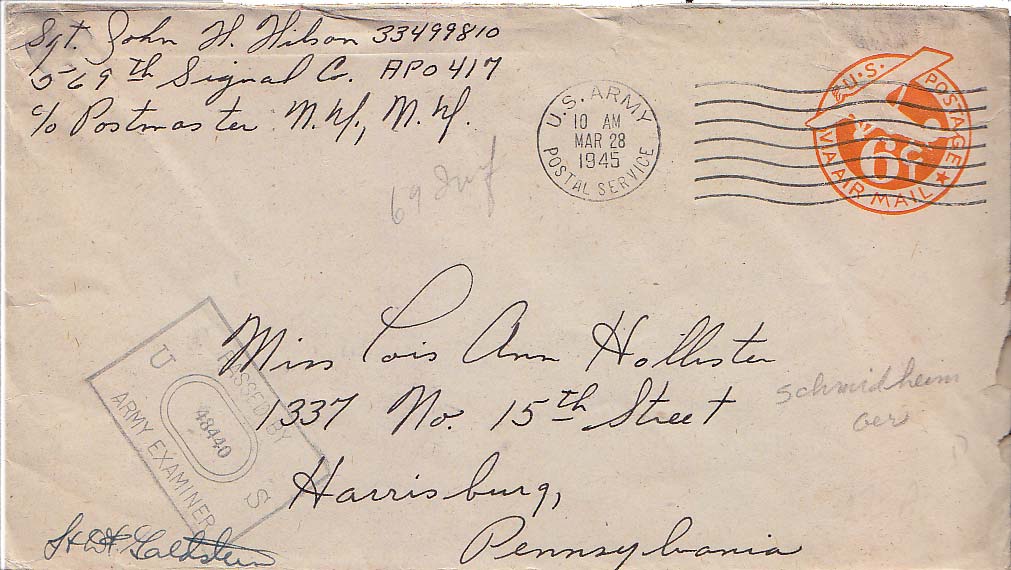 Sgt. John H. Hilson 33499810
569th Signal Co. APO 417
c/o Postmaster N.Y., N.Y.
U.S. ARMY
10 AM
MAR 28
1945
POSTAL SERVICE
U.S. POSTAGE
6¢
VIA AIR MAIL
69 Inf
Miss Lois Ann Hollister
1337 No. 15th Street
Harrisburg,
Pennsylvania
Schmidheim
Ger
PASSED BY
U S
48440
ARMY EXAMINER